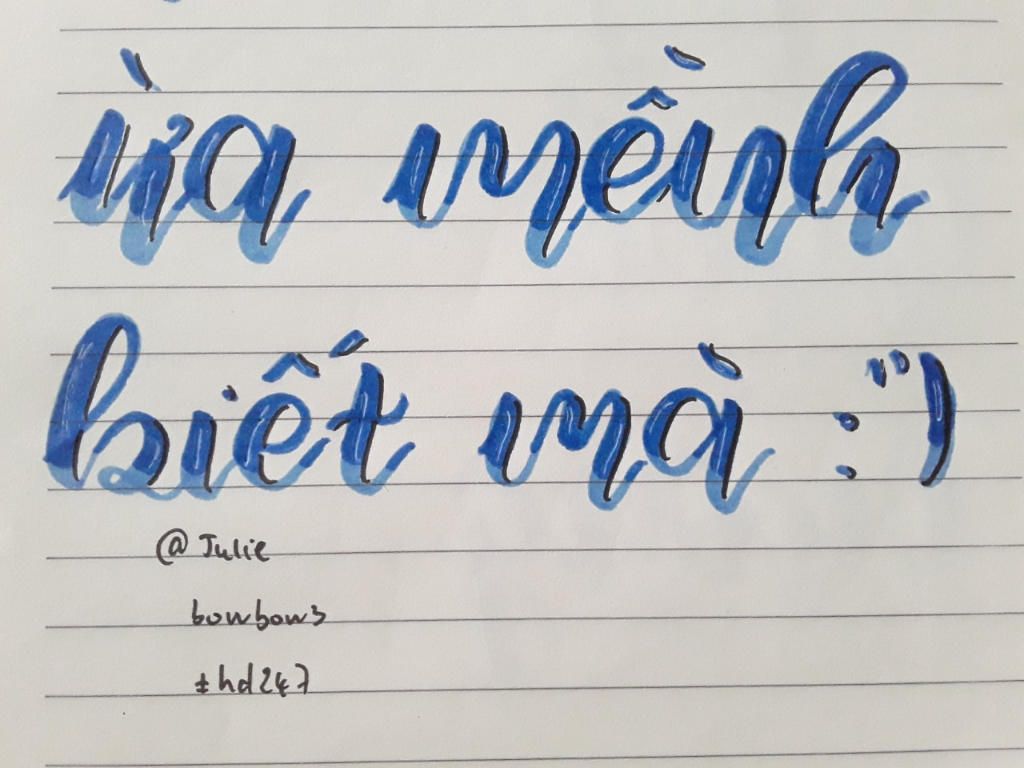 ừa mềnh
biết mà :")
@Julie
bowbow3
thd247